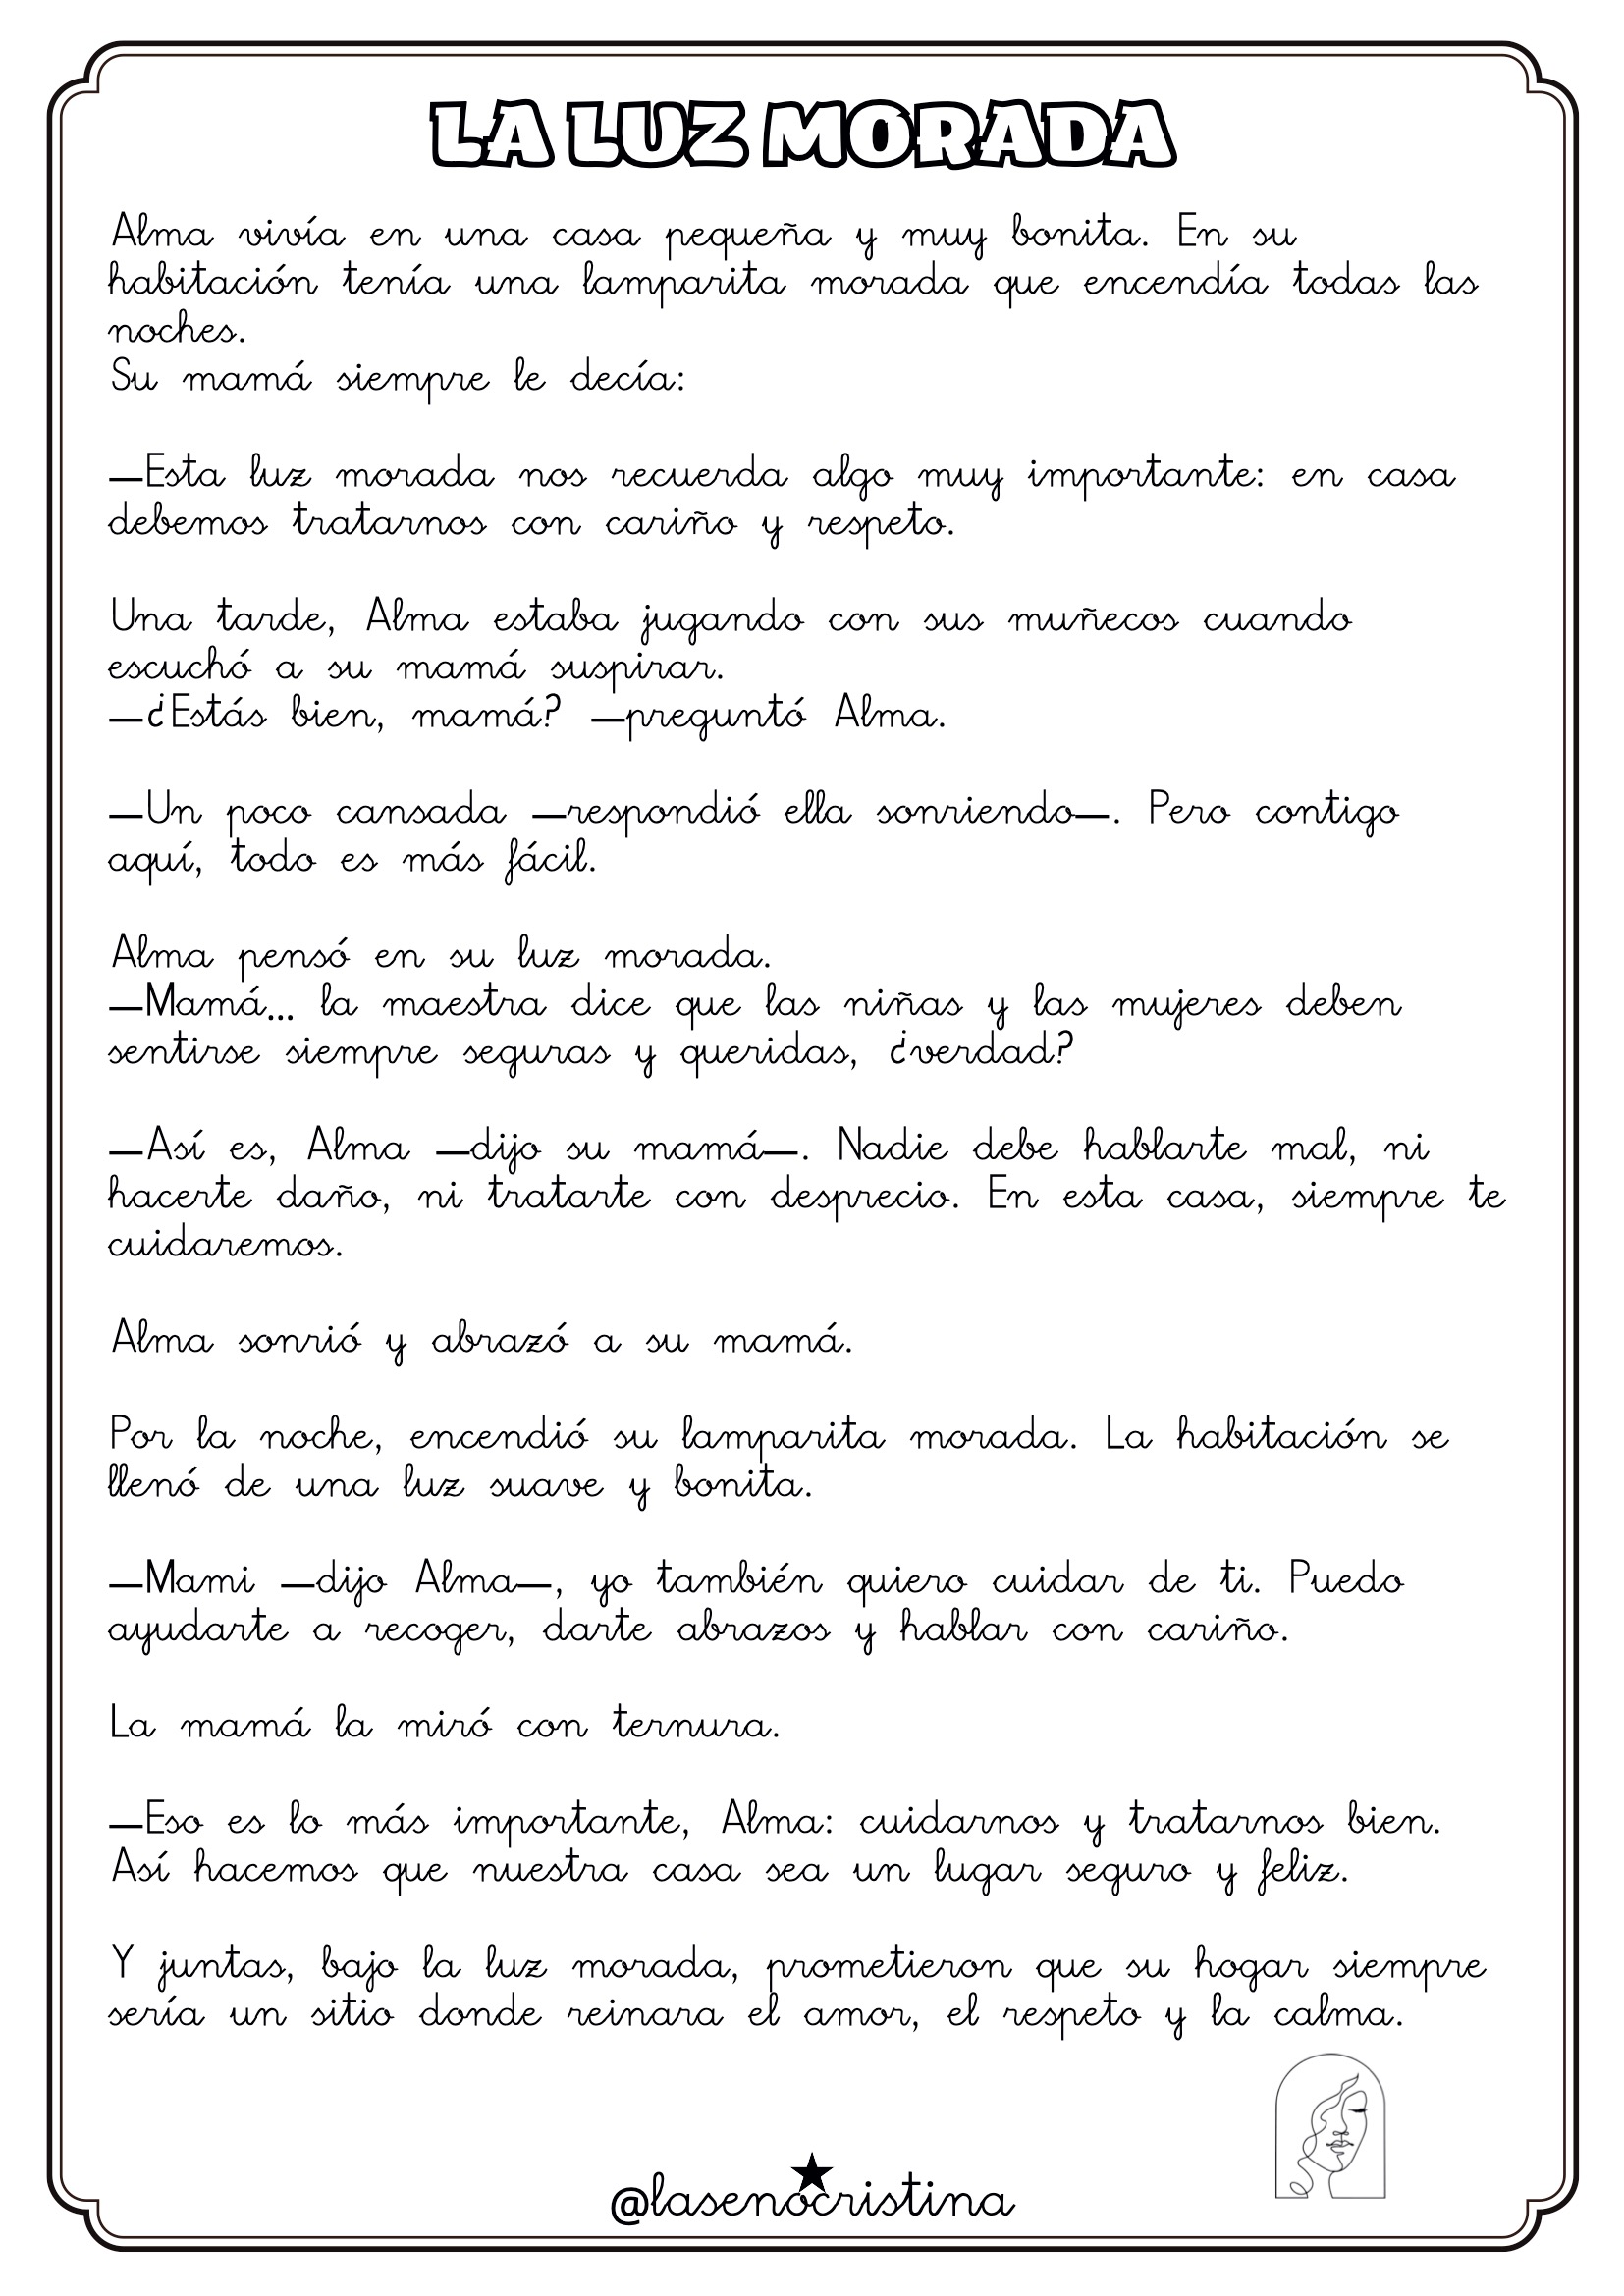 LA LUZ MORADA
Alma vivía en una casa pequeña y muy bonita. En su
habitación tenía una lamparita morada que encendía todas las
noches.
Su mamá siempre le decía:
—Esta luz morada nos recuerda algo muy importante: en casa
debemos tratarnos con cariño y respeto.
Una tarde, Alma estaba jugando con sus muñecos cuando
escuchó a su mamá suspirar.
—¿Estás bien, mamá? —preguntó Alma.
—Un poco cansada —respondió ella sonriendo—. Pero contigo
aquí, todo es más fácil.
Alma pensó en su luz morada.
—Mamá... la maestra dice que las niñas y las mujeres deben
sentirse siempre seguras y queridas, ¿verdad?
—Así es, Alma —dijo su mamá—. Nadie debe hablarte mal, ni
hacerte daño, ni tratarte con desprecio. En esta casa, siempre te
cuidaremos.
Alma sonrió y abrazó a su mamá.
Por la noche, encendió su lamparita morada. La habitación se
llenó de una luz suave y bonita.
—Mami —dijo Alma—, yo también quiero cuidar de ti. Puedo
ayudarte a recoger, darte abrazos y hablar con cariño.
La mamá la miró con ternura.
—Eso es lo más importante, Alma: cuidarnos y tratarnos bien.
Así hacemos que nuestra casa sea un lugar seguro y feliz.
Y juntas, bajo la luz morada, prometieron que su hogar siempre
sería un sitio donde reinara el amor, el respeto y la calma.
@lasenocristina